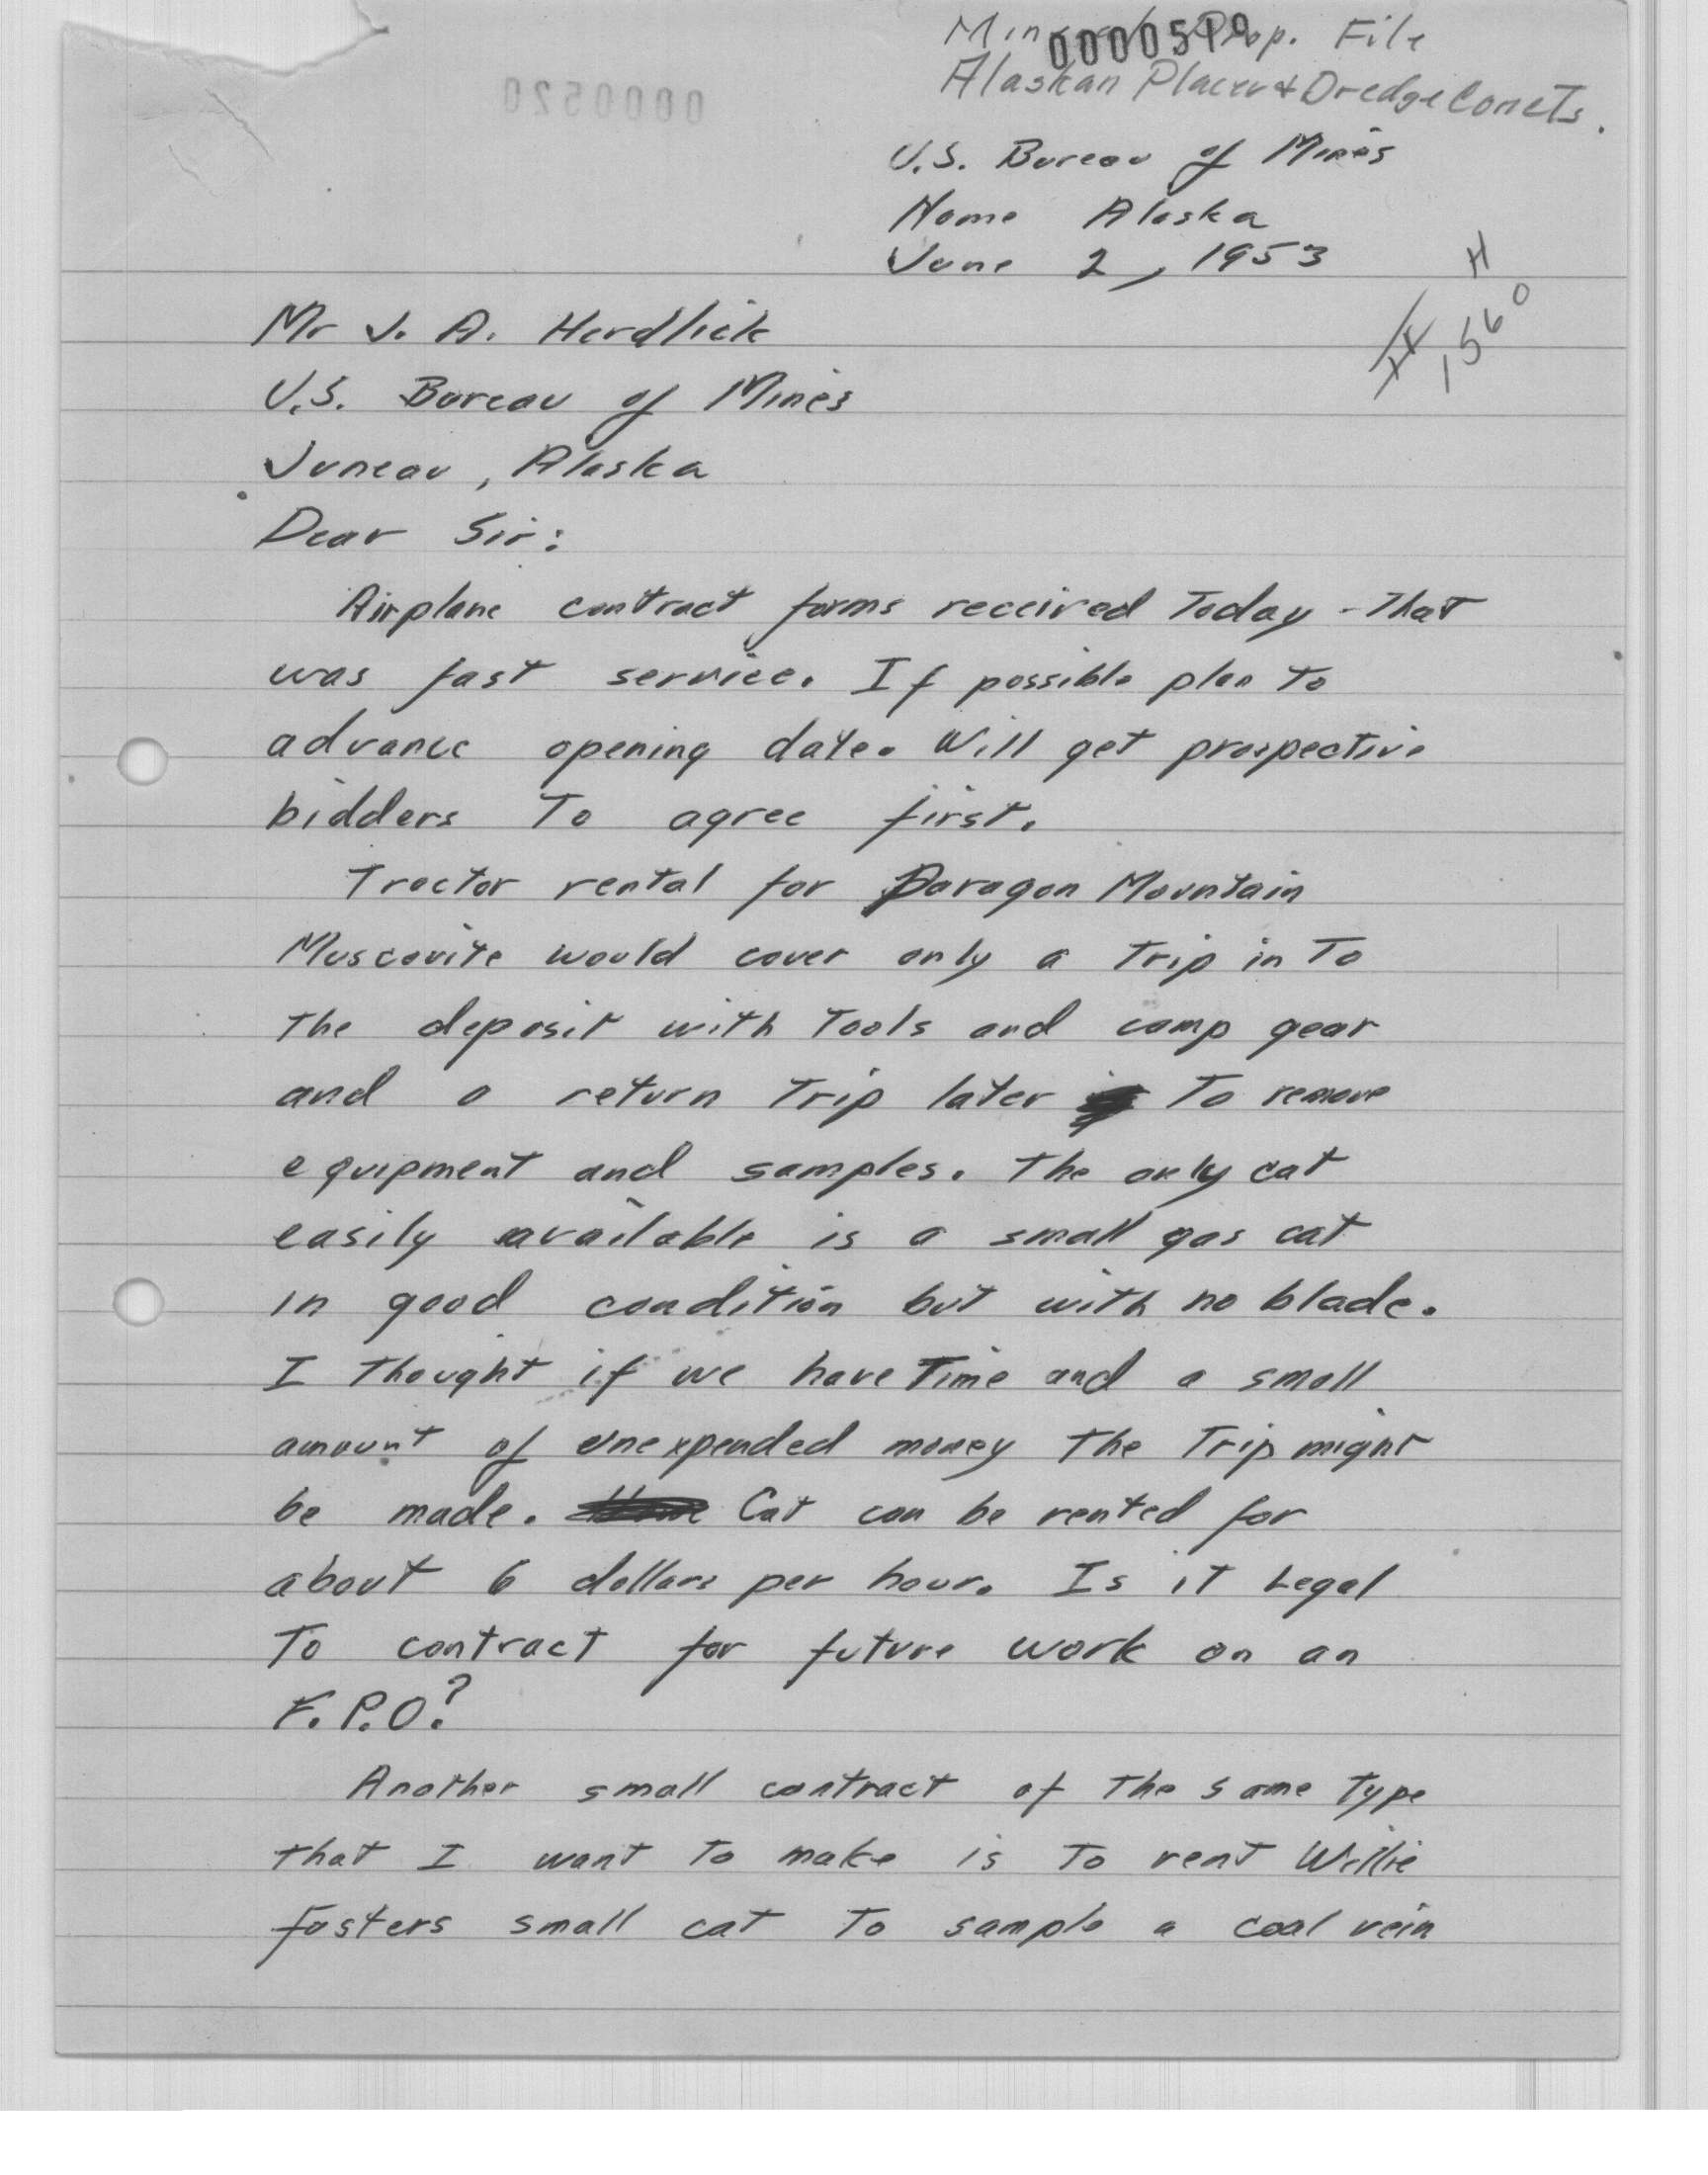 Mineral Prop. File
0000519
Alaskan Placer & Dredge Concts.
0000520
U.S. Bureau of Mines
Nome Alaska
June 2, 1953
H
1560
Mr J. A. Herdlick
U.S. Bureau of Mines
Juneau, Alaska
Dear Sir:
Airplane contract forms received Today - That
was fast service. If possible plan To
advance opening date. Will get prospective
bidders To agree first.
Tractor rental for Paragon Mountain
Muscovite would cover only a Trip in To
The deposit with Tools and camp gear
and a return Trip later To remove
equipment and samples. The only cat
easily available is a small gas cat
in good condition but with no blade.
I Thought if we have Time and a small
amount of unexpended money The Trip might
be made. Cat can be rented for
about 6 dollars per hour. Is it Legal
To contract for future work on an
F.P.O?
Another small contract of The same Type
that I want To make is To rent Willie
Fosters small cat To sample a coal vein